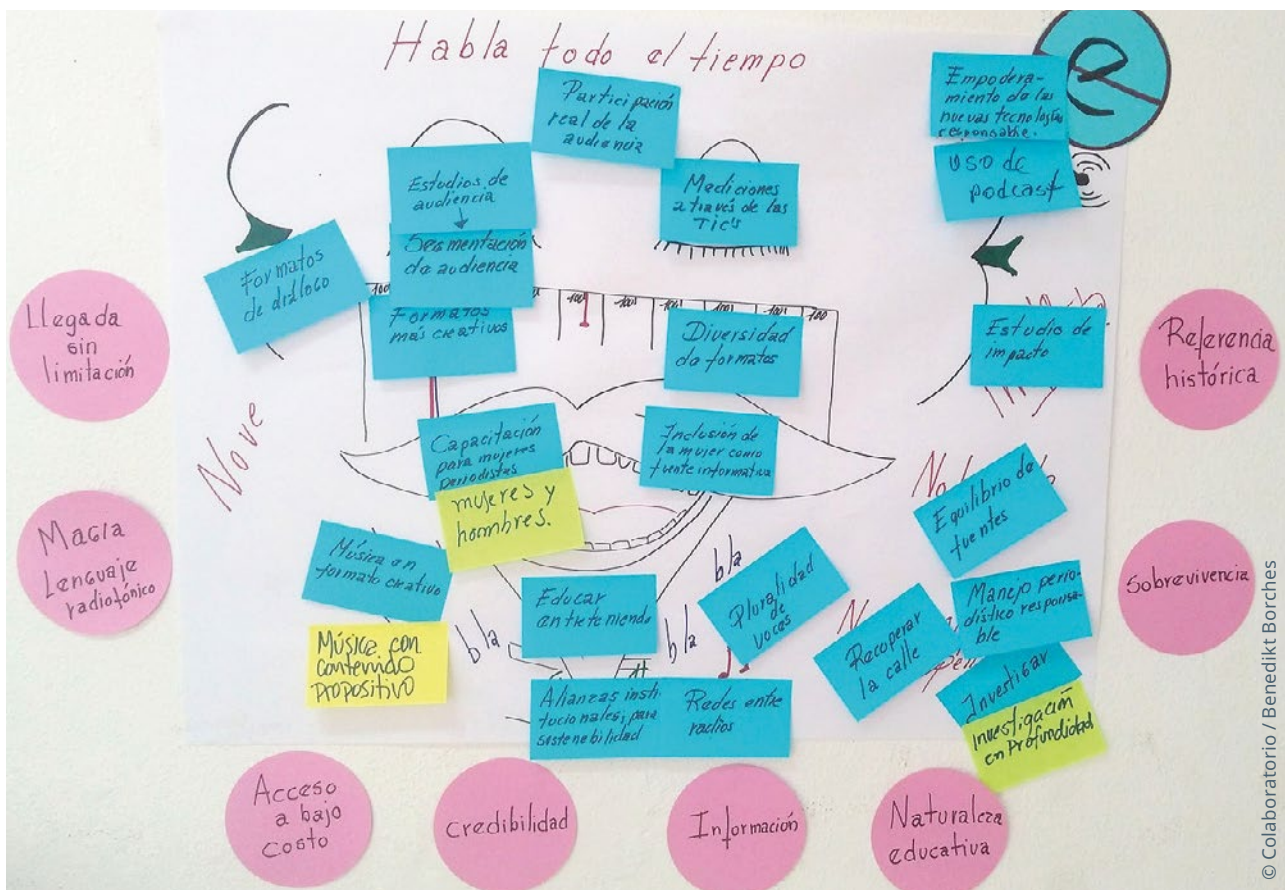 Habla todo el tiempo
e
Participación
real de la
audiencia
Empodera-
miento de las
nuevas tecnologías
responsable.
uso de
podcast
Estudios de
audiencia
Segmentación
de audiencia
Mediciones
a través de las
TIC's
Formatos
de diálogo
Formatos
más creativos
100
100
100
100
100
100
Diversidad
de formatos
Estudio de
impacto
Llegada
sin
limitación
Referencia
histórica
No ve
Capacitación
para mujeres
periodistas
mujeres y
hombres.
Inclusión de
la mujer como
fuente informativa
Equilibrio de
fuentes
Magia
Lenguaje
radiofónico
Sobrevivencia
Música en
formato creativo
Música con
contenido
propositivo
bla
Educar
entreteniendo
bla
bla
Pluralidad
de
voces
Recuperar
la calle
Manejo perio-
dístico responsa-
ble
Investigar
Investigación
en Profundidad
Alianzas insti-
tucionales, para
sostenibilidad
Redes entre
radios
Acceso
a bajo
costo
credibilidad
Información
Naturaleza
educativa
© Colaboratorio / Benedikt Borches